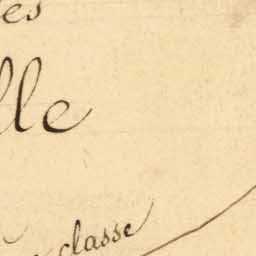 es
lle
classe